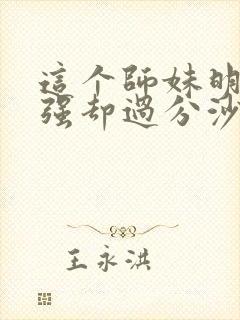 這个師妹明
强却過分沙
王永洪